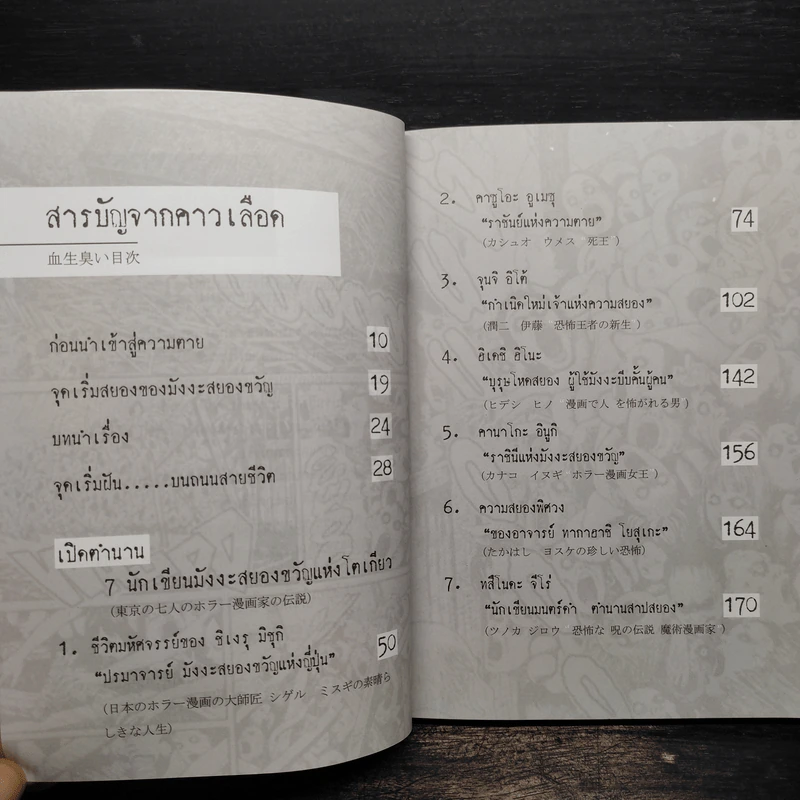 สารบัญจากคาวเลือด
血生臭い目次
ก่อนนำเข้าสู่ความตาย 10
จุดเริ่มสยองของมังงะสยองขวัญ 19
บทนำเรื่อง 24
จุดเริ่มฝัน.....บนถนนสายชีวิต 28
เปิดตำนาน
7 นักเขียนมังงะสยองขวัญแห่งโตเกียว
(東京の七人のホラー漫画家の伝説)
1. ชีวิตมหัศจรรย์ของ ชิเงรุ มิซุกิ 50
"ปรมาจารย์ มังงะสยองขวัญแห่งญี่ปุ่น"
(日本のホラー漫画の大師匠 シゲル ミスギの素晴ら
しきな人生)
2. คาซูโอะ อูเมซุ 74
"ราชันย์แห่งความตาย"
(カシュオ ウメス 死王 )
3. จุนจิ อิโต้ 102
"กำเนิดใหม่เจ้าแห่งความสยอง"
(潤二 伊藤 恐怖王者の新生 )
4. ฮิเดชิ ฮิโนะ 142
"บุรุษโหดสยอง ผู้ใช้มังงะบีบคั้นผู้คน"
(ヒデシ ヒノ 漫画で人 を怖がれる男 )
5. คานาโกะ อินูกิ 156
"ราชินีแห่งมังงะสยองขวัญ"
(カナコ イヌギ ホラー漫画女王 )
6. ความสยองพิศวง 164
"ของอาจารย์ ทากาฮาชิ โยสุเกะ"
(たかはし ヨスケの珍しい恐怖)
7. ทสึโนดะ จีโร่ 170
"นักเขียนมนตร์ดำ ตำนานสาปสยอง"
(ツノカ ジロウ 恐怖な 呪の伝説 魔術漫画家 )